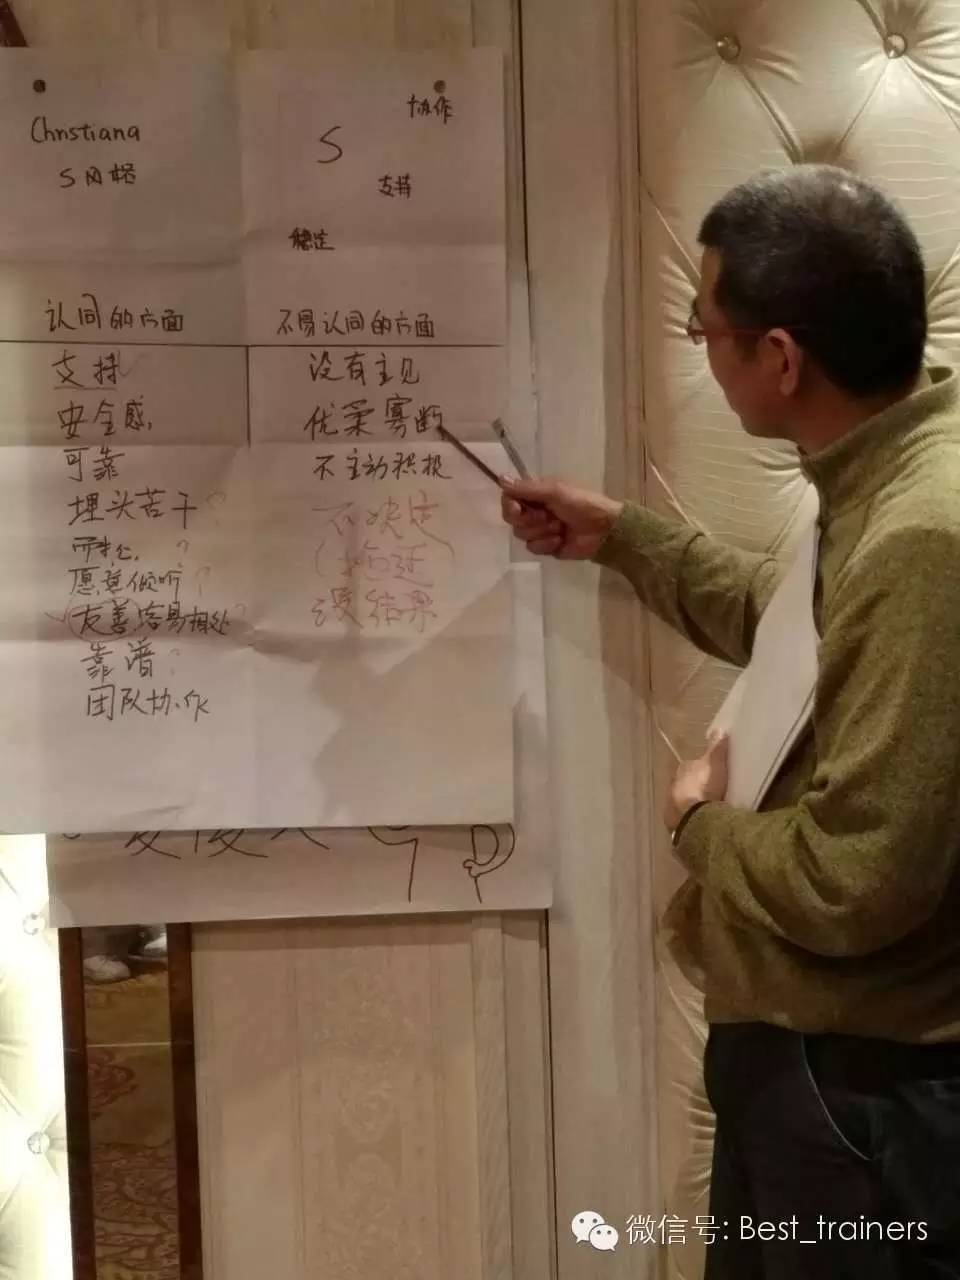 Christiana
S风格
协作
S
支持
稳定
认同的方面
不易认同的方面
支持
安全感
可靠
埋头苦干?
耐心 ?
愿意倾听?
友善容易相处?
靠谱?
团队协作
没有主见
优柔寡断
不主动积极
不决定
没结果
微信号: Best_trainers